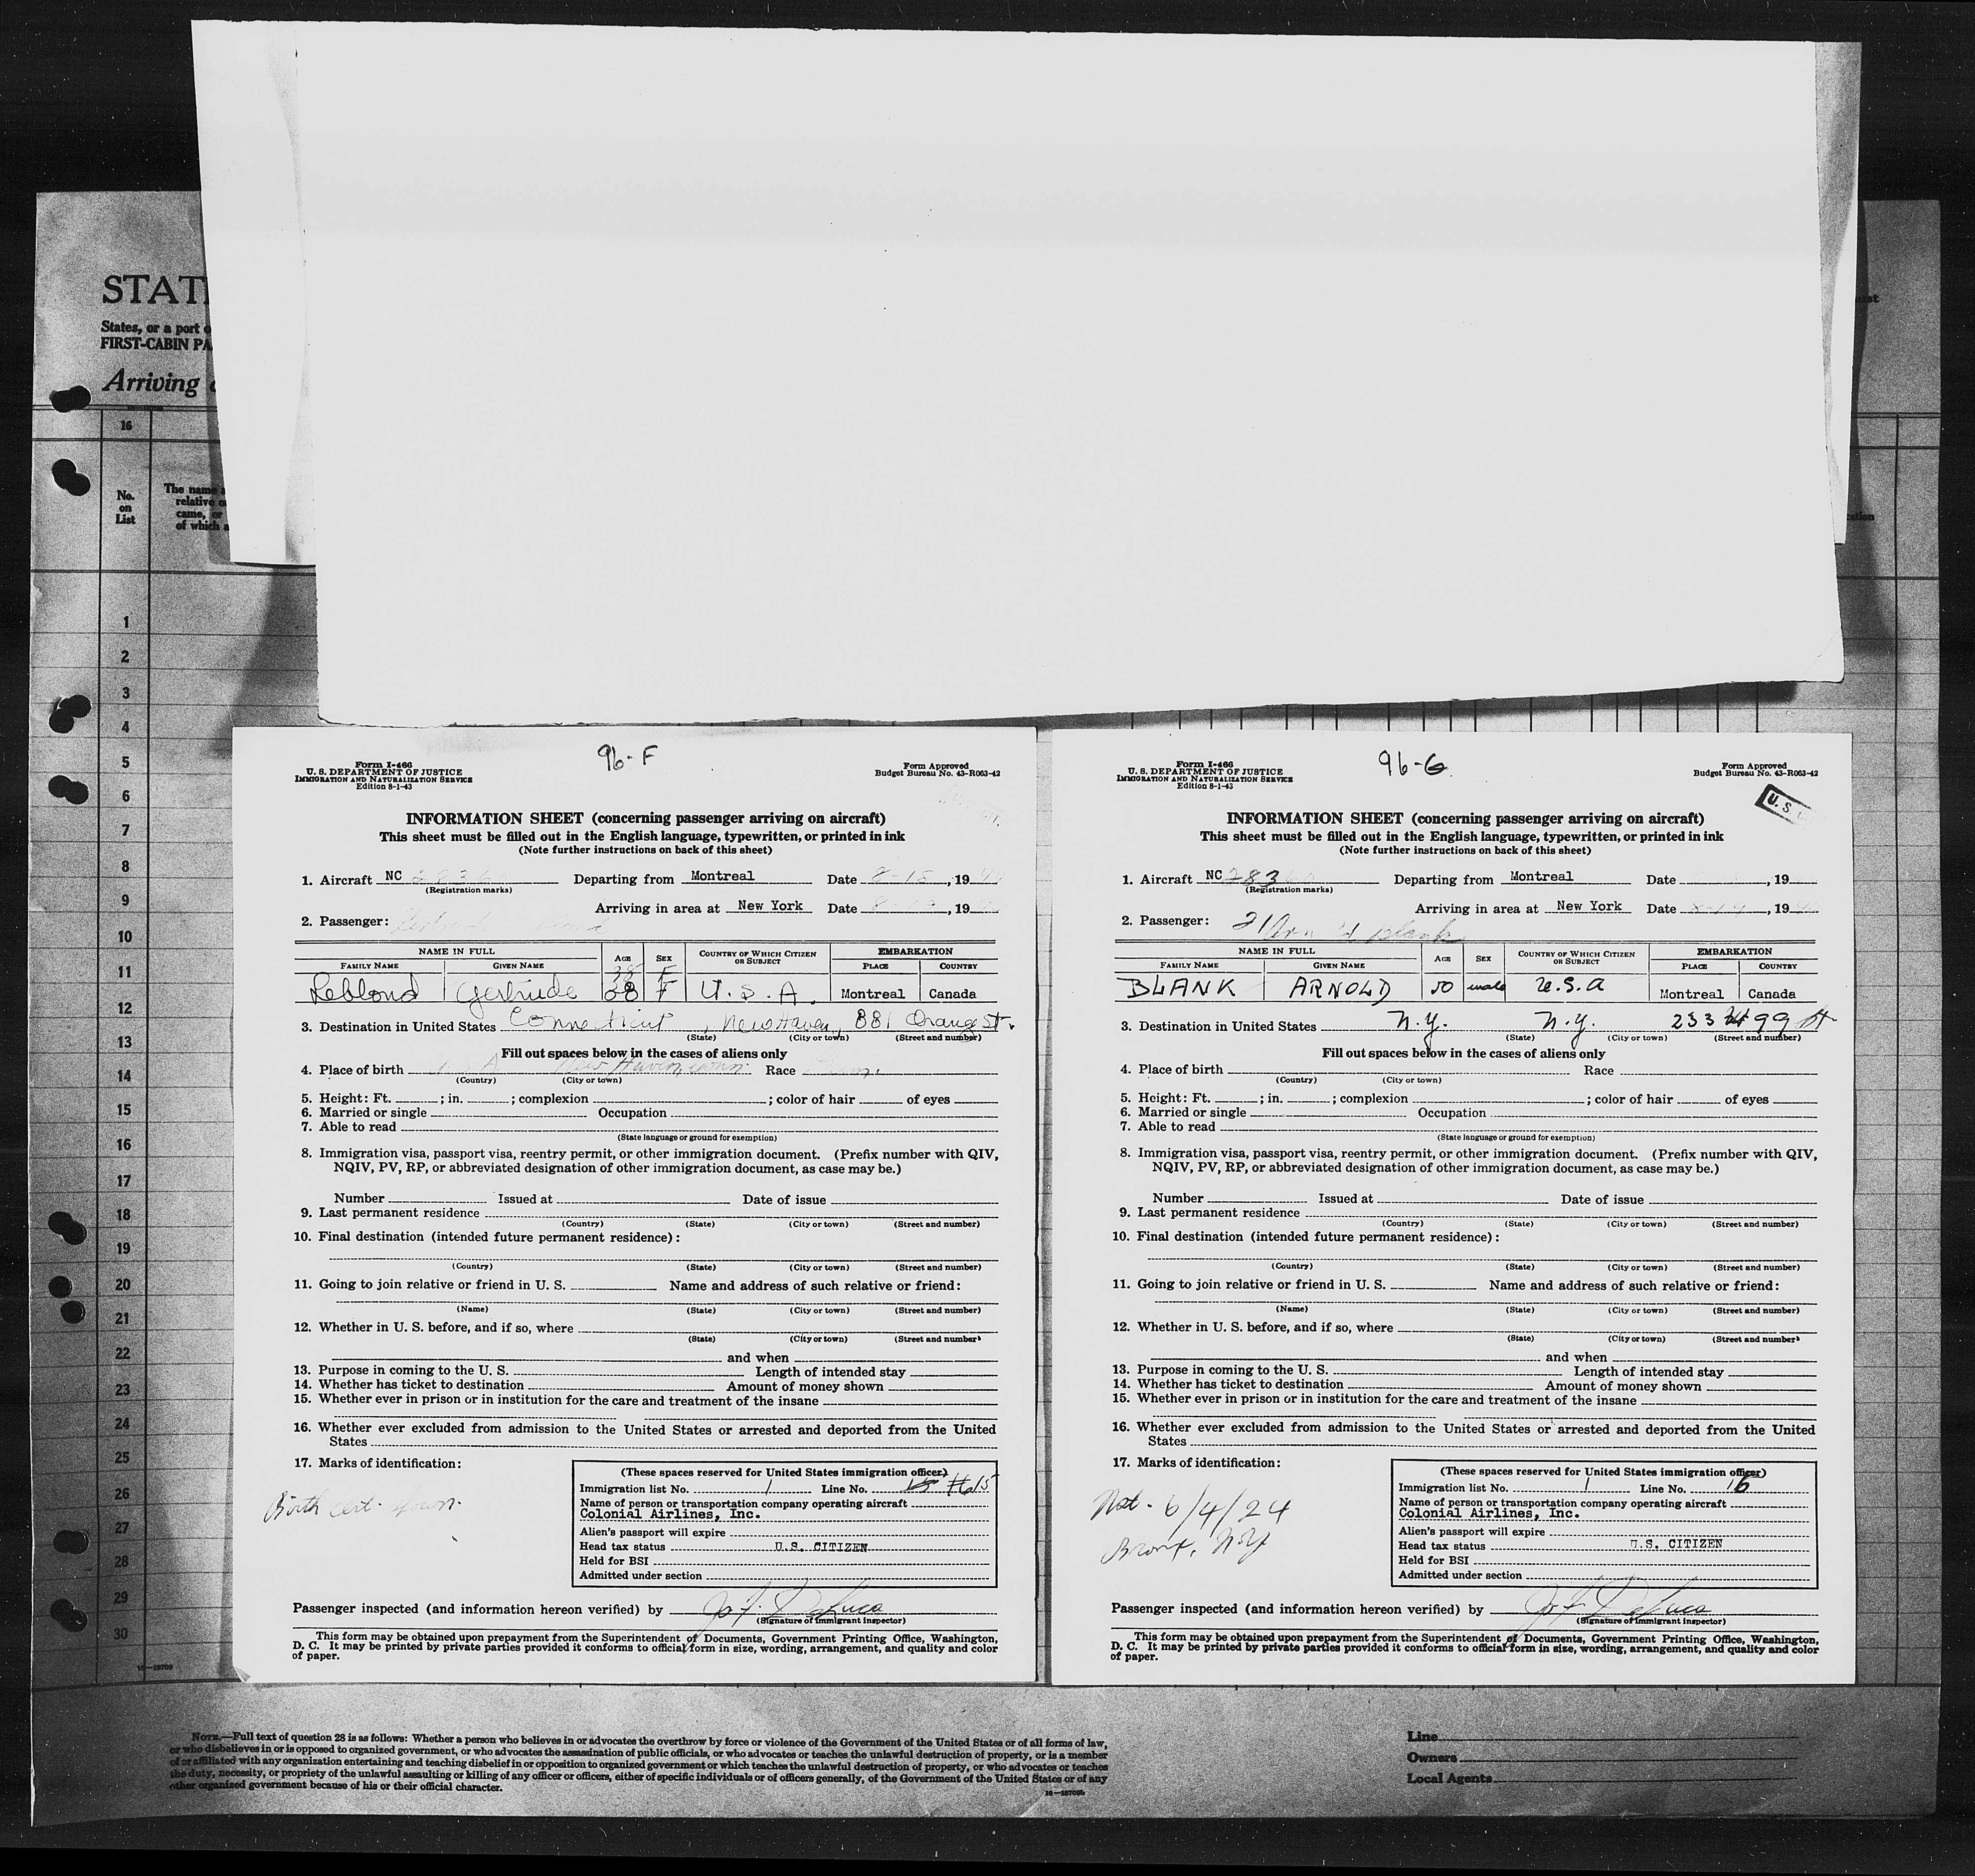 STAT
States, or a port o
FIRST-CABIN PA
Arriving
16
No.
on
List
The name
relative o
came, or
of which a
1
2
3
4
5
6
7
8
9
10
11
12
13
14
15
16
17
18
19
20
21
22
23
24
25
26
27
28
29
30
96-F
Form I-466
U. S. DEPARTMENT OF JUSTICE
IMMIGRATION AND NATURALIZATION SERVICE
Edition 8-1-43
Form Approved
Budget Bureau No. 43-R063-42
INFORMATION SHEET (concerning passenger arriving on aircraft)
This sheet must be filled out in the English language, typewritten, or printed in ink
(Note further instructions on back of this sheet)
1. Aircraft NC 2836 Departing from Montreal Date 8-15, 19
(Registration marks)
Arriving in area at New York Date , 19
2. Passenger:
NAME IN FULL AGE SEX COUNTRY OF WHICH CITIZEN OR SUBJECT EMBARKATION
FAMILY NAME GIVEN NAME PLACE COUNTRY
38 F
Leblond Gertrude 38 F U.S.A. Montreal Canada
3. Destination in United States Connecticut, New Haven, 881 Orange St.
(State) (City or town) (Street and number)
Fill out spaces below in the cases of aliens only
4. Place of birth New Haven Conn. Race
(Country) (City or town)
5. Height: Ft. ; in. ; complexion ; color of hair of eyes
6. Married or single Occupation
7. Able to read
(State language or ground for exemption)
8. Immigration visa, passport visa, reentry permit, or other immigration document. (Prefix number with QIV,
NQIV, PV, RP, or abbreviated designation of other immigration document, as case may be.)
Number Issued at Date of issue
9. Last permanent residence
(Country) (State) (City or town) (Street and number)
10. Final destination (intended future permanent residence):
(Country) (State) (City or town) (Street and number)
11. Going to join relative or friend in U. S. Name and address of such relative or friend:
(Name) (State) (City or town) (Street and number)
12. Whether in U. S. before, and if so, where
(State) (City or town) (Street and number)
and when
13. Purpose in coming to the U. S. Length of intended stay
14. Whether has ticket to destination Amount of money shown
15. Whether ever in prison or in institution for the care and treatment of the insane
16. Whether ever excluded from admission to the United States or arrested and deported from the United
States
17. Marks of identification:
Birth cert. shown.
(These spaces reserved for United States immigration officer)
Immigration list No. 1 Line No. 15
Name of person or transportation company operating aircraft
Colonial Airlines, Inc.
Alien's passport will expire
Head tax status U.S. CITIZEN
Held for BSI
Admitted under section
Passenger inspected (and information hereon verified) by Jo. F. DeLuca
(Signature of Immigrant Inspector)
This form may be obtained upon prepayment from the Superintendent of Documents, Government Printing Office, Washington,
D. C. It may be printed by private parties provided it conforms to official form in size, wording, arrangement, and quality and color
of paper.
96-G
Form I-466
U. S. DEPARTMENT OF JUSTICE
IMMIGRATION AND NATURALIZATION SERVICE
Edition 8-1-43
Form Approved
Budget Bureau No. 43-R063-42
U. S.
INFORMATION SHEET (concerning passenger arriving on aircraft)
This sheet must be filled out in the English language, typewritten, or printed in ink
(Note further instructions on back of this sheet)
1. Aircraft NC 283 Departing from Montreal Date , 19
(Registration marks)
Arriving in area at New York Date , 19
2. Passenger: Arnold Blank
NAME IN FULL AGE SEX COUNTRY OF WHICH CITIZEN OR SUBJECT EMBARKATION
FAMILY NAME GIVEN NAME PLACE COUNTRY
BLANK ARNOLD 50 male U.S.A Montreal Canada
3. Destination in United States N.Y. N.Y. 233 W 99 St
(State) (City or town) (Street and number)
Fill out spaces below in the cases of aliens only
4. Place of birth Race
(Country) (City or town)
5. Height: Ft. ; in. ; complexion ; color of hair of eyes
6. Married or single Occupation
7. Able to read
(State language or ground for exemption)
8. Immigration visa, passport visa, reentry permit, or other immigration document. (Prefix number with QIV,
NQIV, PV, RP, or abbreviated designation of other immigration document, as case may be.)
Number Issued at Date of issue
9. Last permanent residence
(Country) (State) (City or town) (Street and number)
10. Final destination (intended future permanent residence):
(Country) (State) (City or town) (Street and number)
11. Going to join relative or friend in U. S. Name and address of such relative or friend:
(Name) (State) (City or town) (Street and number)
12. Whether in U. S. before, and if so, where
(State) (City or town) (Street and number)
and when
13. Purpose in coming to the U. S. Length of intended stay
14. Whether has ticket to destination Amount of money shown
15. Whether ever in prison or in institution for the care and treatment of the insane
16. Whether ever excluded from admission to the United States or arrested and deported from the United
States
17. Marks of identification:
Nat. 6/4/24
Bronx, N.Y
(These spaces reserved for United States immigration officer)
Immigration list No. 1 Line No. 16
Name of person or transportation company operating aircraft
Colonial Airlines, Inc.
Alien's passport will expire
Head tax status U.S. CITIZEN
Held for BSI
Admitted under section
Passenger inspected (and information hereon verified) by Jo. F. DeLuca
(Signature of Immigrant Inspector)
This form may be obtained upon prepayment from the Superintendent of Documents, Government Printing Office, Washington,
D. C. It may be printed by private parties provided it conforms to official form in size, wording, arrangement, and quality and color
of paper.
16—18709
NOTE.—Full text of question 28 is as follows: Whether a person who believes in or advocates the overthrow by force or violence of the Government of the United States or of all forms of law,
or who disbelieves in or is opposed to organized government, or who advocates the assassination of public officials, or who advocates or teaches the unlawful destruction of property, or is a member
of or affiliated with any organization entertaining and teaching disbelief in or opposition to organized government or which teaches the unlawful destruction of property, or who advocates or teaches
the duty, necessity, or propriety of the unlawful assaulting or killing of any officer or officers, either of specific individuals or of officers generally, of the Government of the United States or of any
other organized government because of his or their official character.
16—18709b
Line
Owners
Local Agents